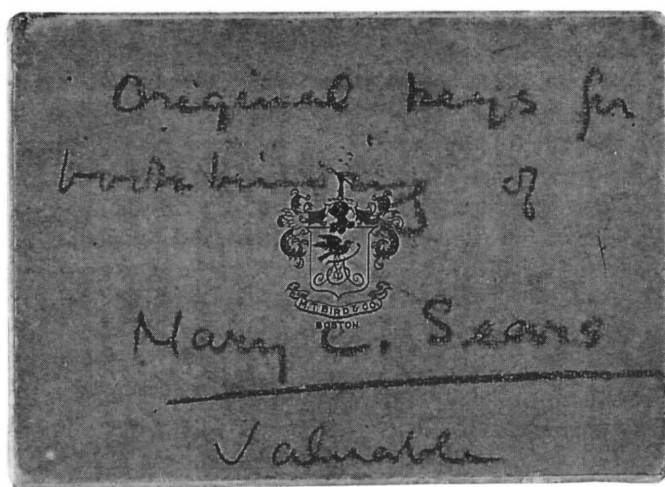 Original keys for
bookbinding of
M.T. BIRD & CO.
BOSTON
Mary C. Sears
Valuable